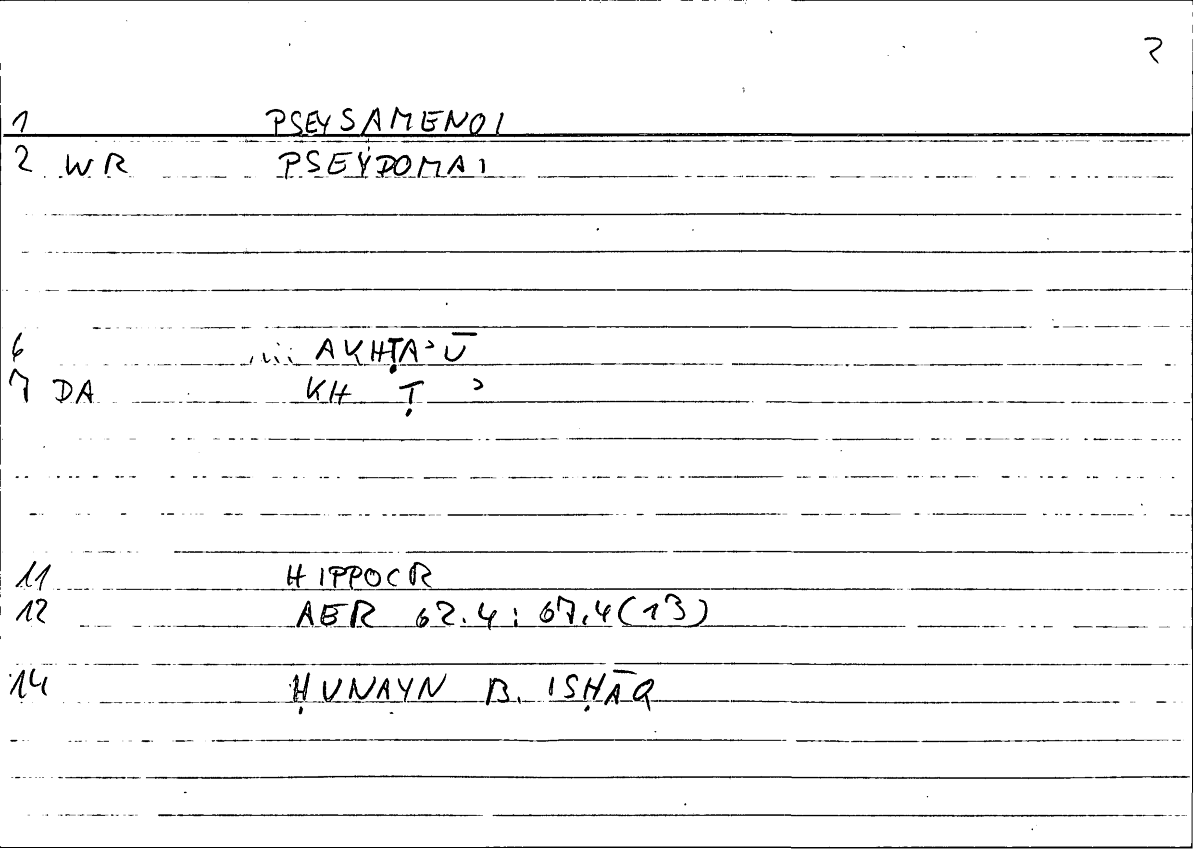 2
1 PSEYSAMENOI
2 WR PSEYDOMAI
6 ... AKHṬAʾŪ
7 DA KH Ṭ ʾ
11 HIPPOCR
12 AER 62.4: 67.4(13)
14 ḤUNAYN B. ISḤĀQ